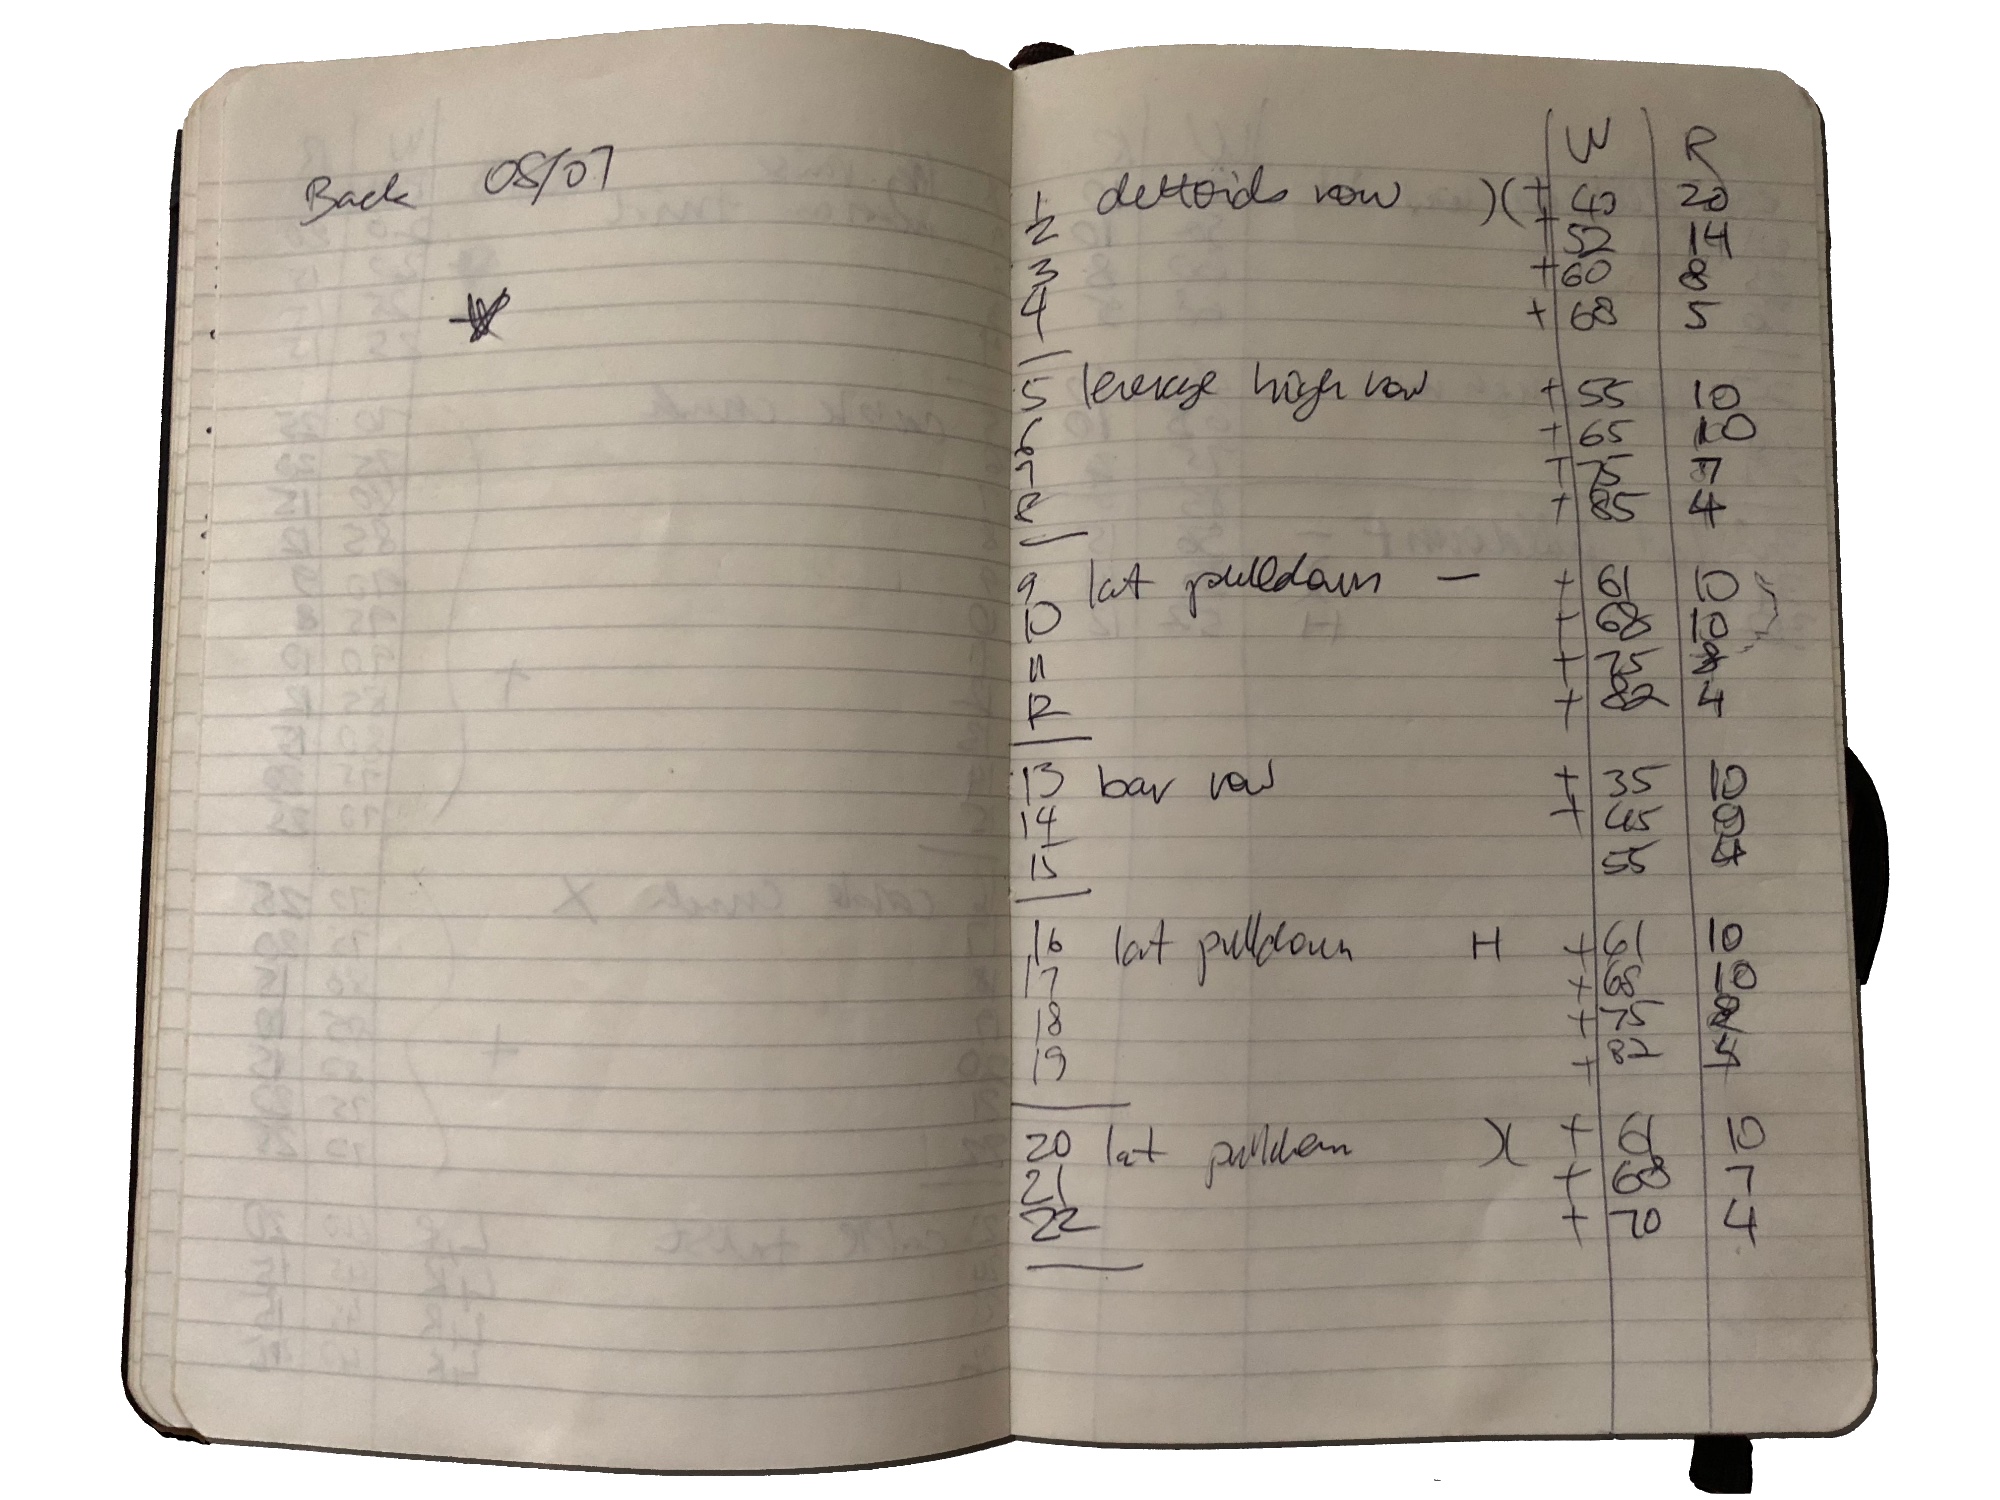 Back 08/07
W R
1 deltoids row )( + 40 20
2 + 52 14
3 + 60 8
4 + 68 5
5 leverage high row + 55 10
6 + 65 10
7 + 75 7
8 + 85 4
9 lat pulldown — + 61 10
10 + 68 10
11 + 75 8
12 + 82 4
13 bar row + 35 10
14 + 45
15 55 4
16 lat pulldown H + 61 10
17 + 68 10
18 + 75 8
19 + 82 4
20 lat pulldown )( + 61 10
21 + 68 7
22 + 70 4